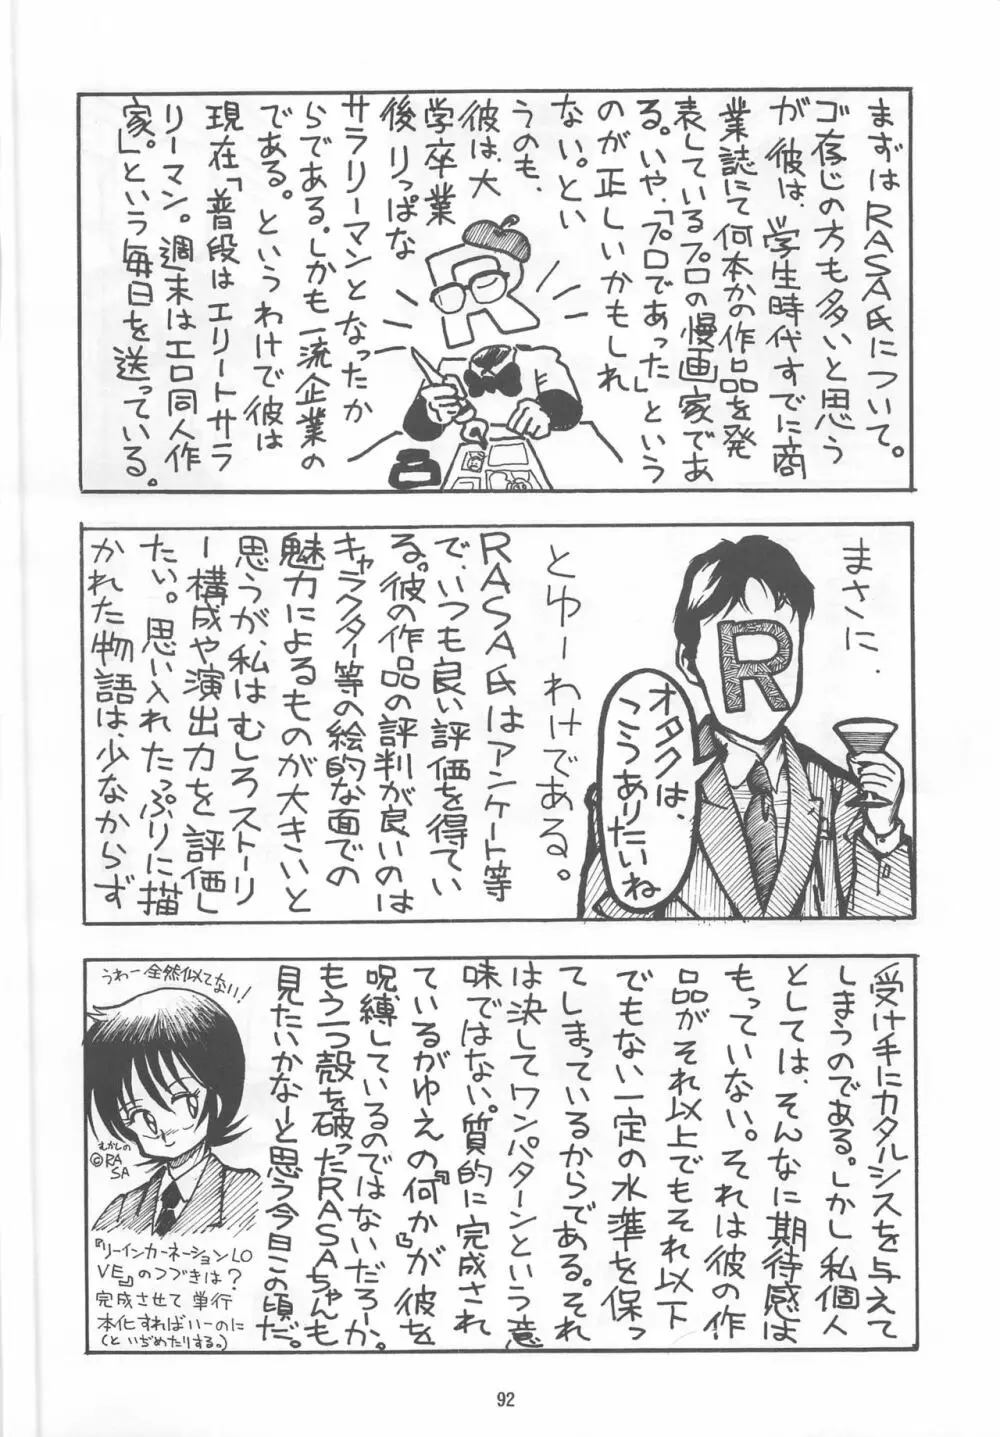 まずはRASA氏について。
ゴ存じの方も多いと思う
が彼は、学生時代すでに商
業誌にて何本かの作品を発
表しているプロの慢画家であ
る。いや、「プロであった」という
のが正しいかもしれ
ない。とい
うのも、
彼は、大
学卒業
後りっぱな
サラリーマンとなったか
らである。しかも一流企業の
である。というわけで彼は
現在「普段はエリートサラ
リーマン。週末はエロ同人作
家。」という毎日を送っている。
まさに、
オタクは、
こうありたいね
とゆーわけである。
RASA氏はアンケート等
で、いつも良い評価を得てい
る。彼の作品の評判が良いのは
キャラクター等の絵的な面での
魅力によるものが大きいと
思うが、私はむしろストーリ
ー構成や演出力を評価し
たい。思い入れたっぷりに描
かれた物語は、少なからず
受け手にカタルシスを与えて
しまうのである。しかし私個人
としては、そんなに期待感は
もっていない。それは彼の作
品がそれ以上でもそれ以下
でもない一定の水準を保っ
てしまっているからである。それ
は決してワンパターンという意
味ではない。質的に完成され
ているがゆえの『何か』が彼を
呪縛しているのではないだろーか。
もう一つ殻を破ったRASAちゃんも
見たいかなーと思う今日この頃だ。
うわー全然似てない!
むかしの
©RA
SA
『リーインカーネーションLO
VE』のつづきは?
完成させて単行
本化すればいーのに
(といぢめたりする。)
92